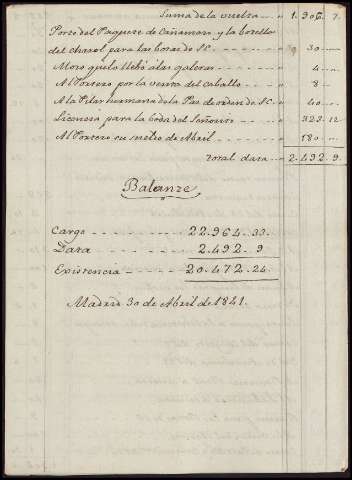 Suma de la vuelta 1.906. 7.
Porte del Paquete de Cañamaso y la botella
del charol para las botas de S.E. 30
Mozo que la llebó á las galeras 4
Al Portero por la venta del caballo 8
A la Pilar hermana de la Paz de orden de S.E. 40
Licencia para la boda del Señorito 323. 12
Al Portero su sueldo de Abril 180
Total data 2.492. 9.
Balanze
Cargo 22.964. 33.
Data 2.492. 9
Existencia 20.472. 24.
Madrid 30 de Abril de 1841.